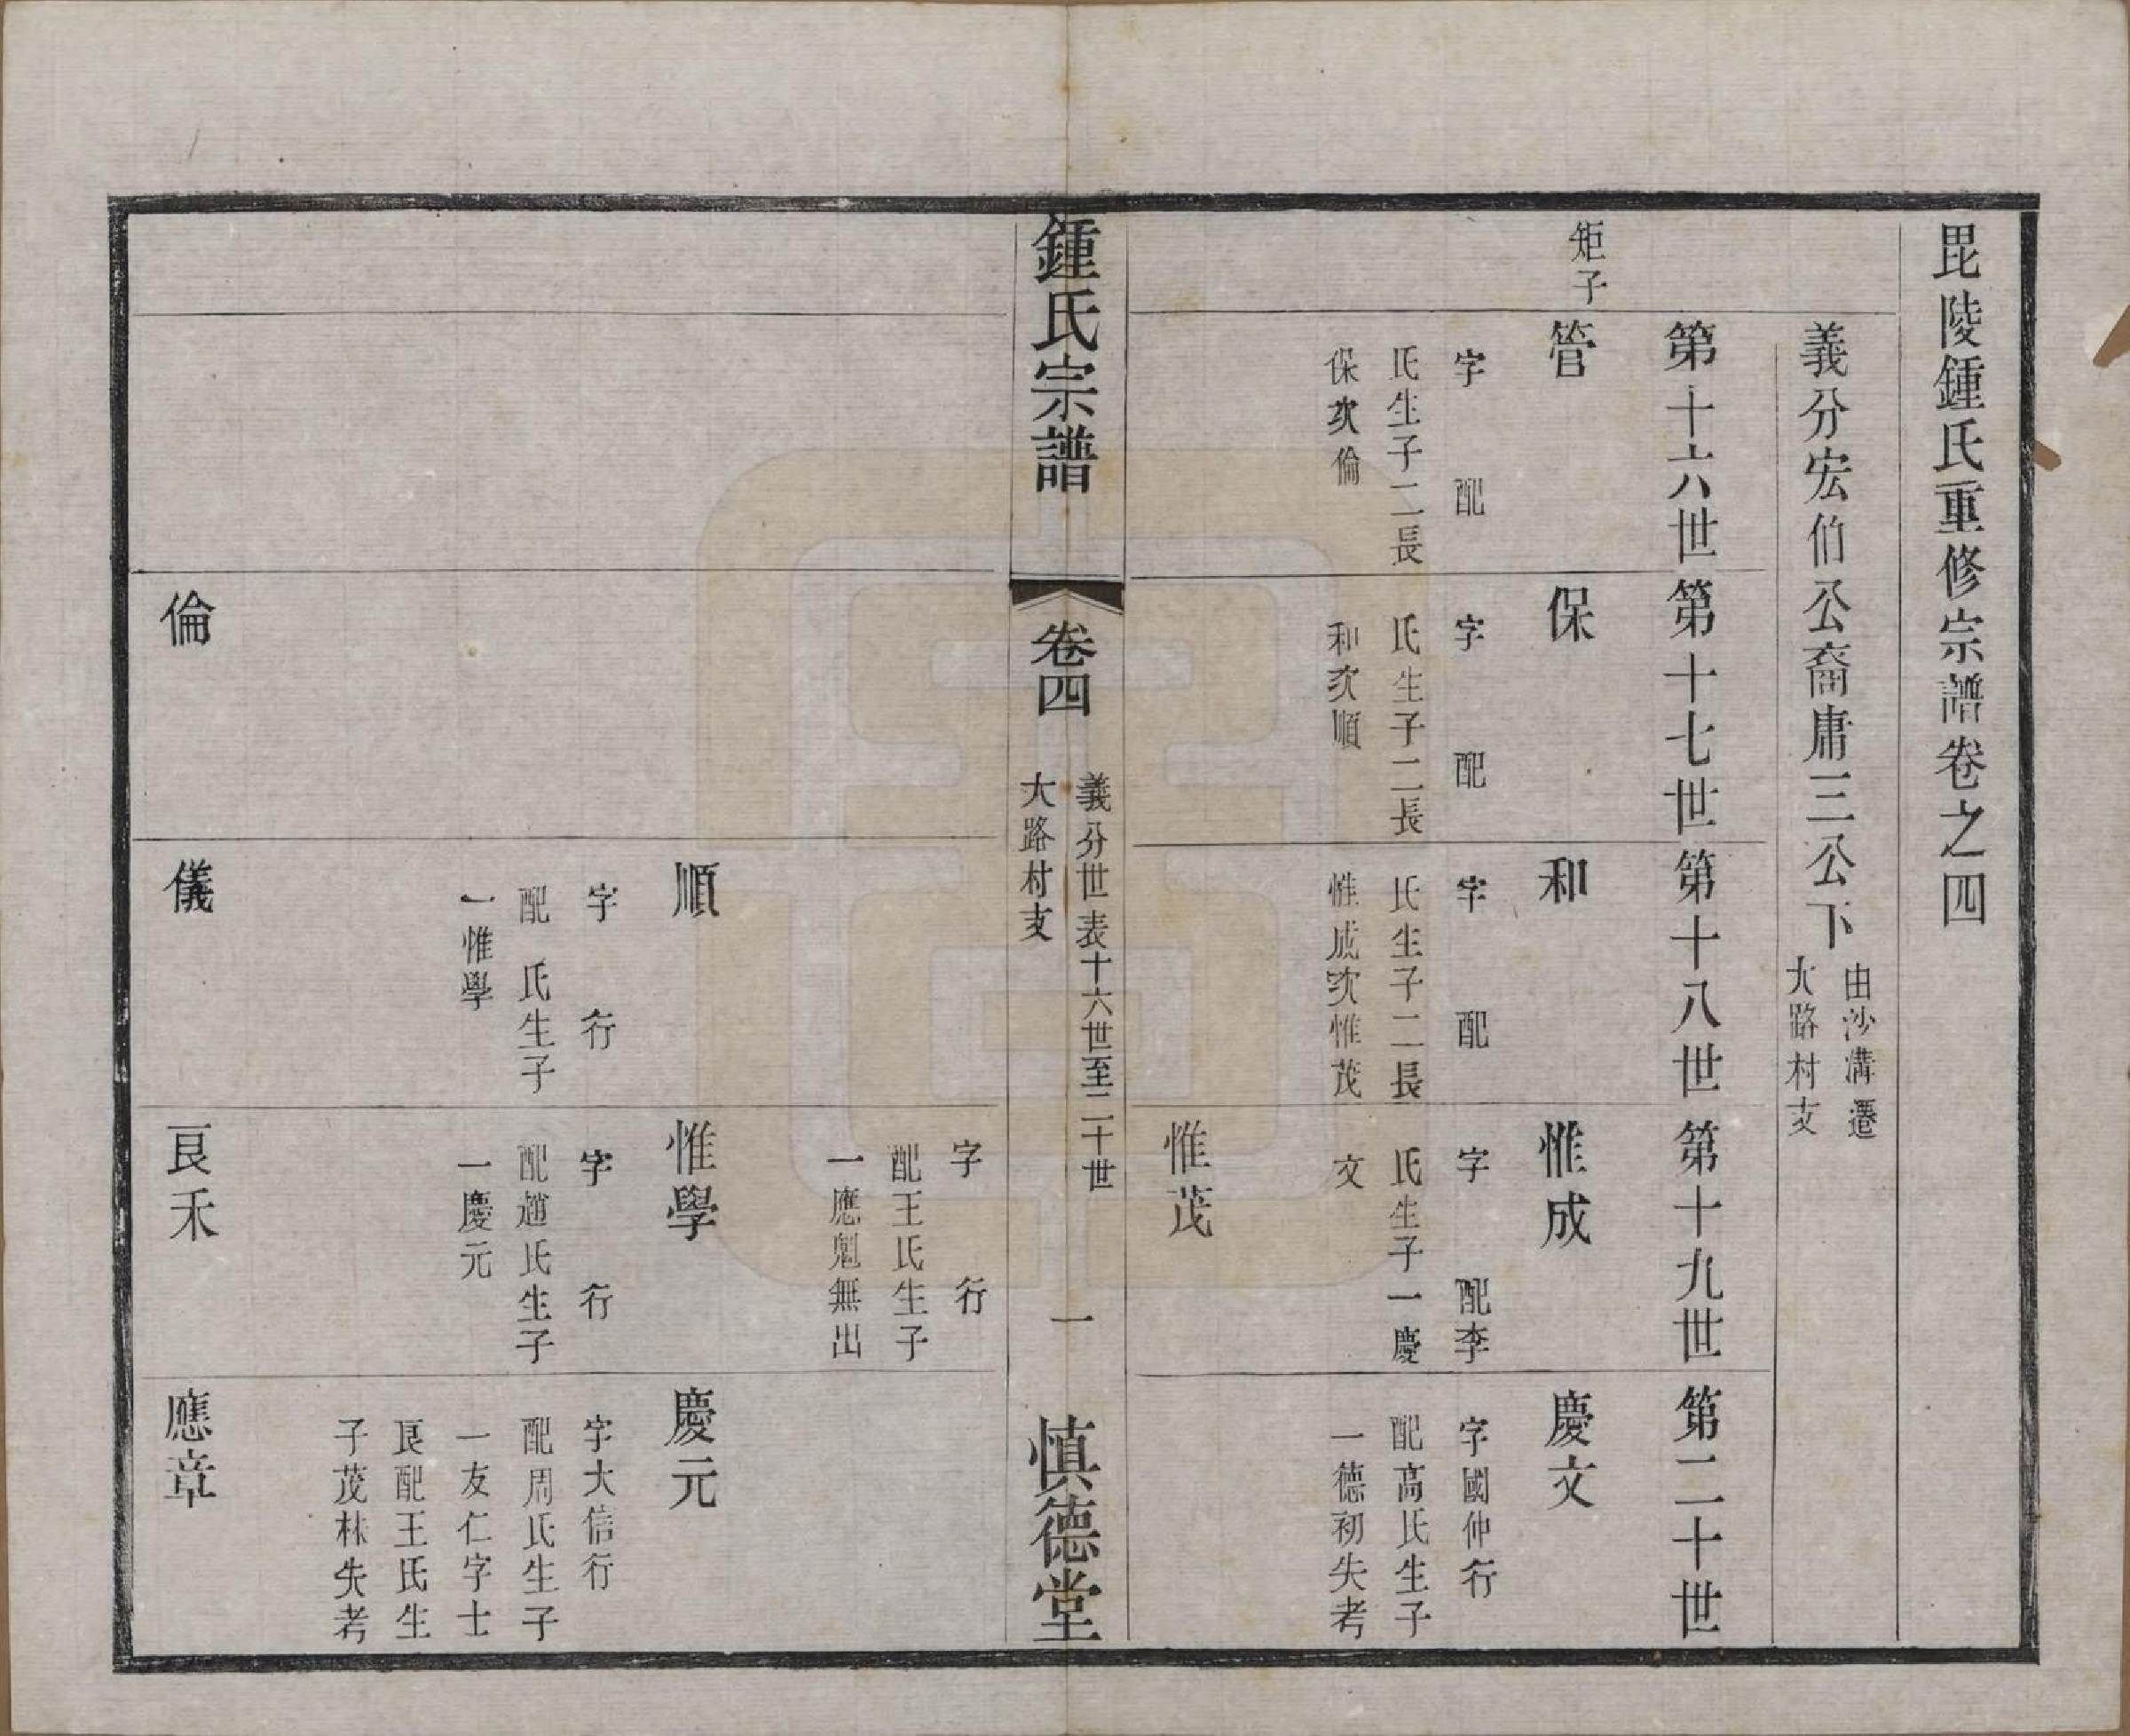 毘陵鍾氏重修宗譜卷之四
義分宏伯公裔庸三公下
由沙溝遷
大路村支
第十六世
第十七世
第十八世
第十九世
第二十世
矩子
管
字　配
氏生子二長
保次倫
保
字　配
氏生子二長
和次順
和
字　配
氏生子二長
惟成次惟茂
惟成
字　配李
氏生子一慶
文
慶文
字國仲行
配高氏生子
一德初失考
惟茂
鍾氏宗譜
卷四
義分世表十六世至二十世
大路村支
一
慎德堂
字　行
配王氏生子
一應魁無出
順
字　行
配　氏生子
一惟學
惟學
字　行
配趙氏生子
一慶元
慶元
字大信行
配周氏生子
一友仁字士
良配王氏生
子茂林失考
倫
儀
良禾
應章